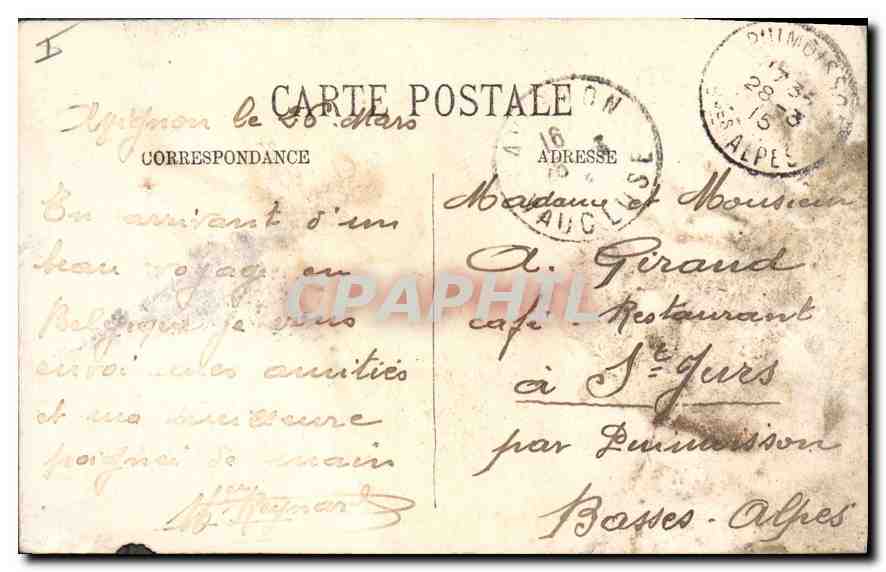 CARTE POSTALE
Avignon le 26 Mars
CORRESPONDANCE
ADRESSE
En arrivant d'un
beau voyage en
Belgique je vous
envoi mes amitiés
et ma meilleure
poignei de main
Reynard
Madame et Monsieur
A. Giraud
café - Restaurant
à St Jurs
par Puimoisson
Basses - Alpes
AVIGNON
16
VAUCLUSE
PUIMOISSON
28 - 3
15
BSES ALPES
CPAPHIL